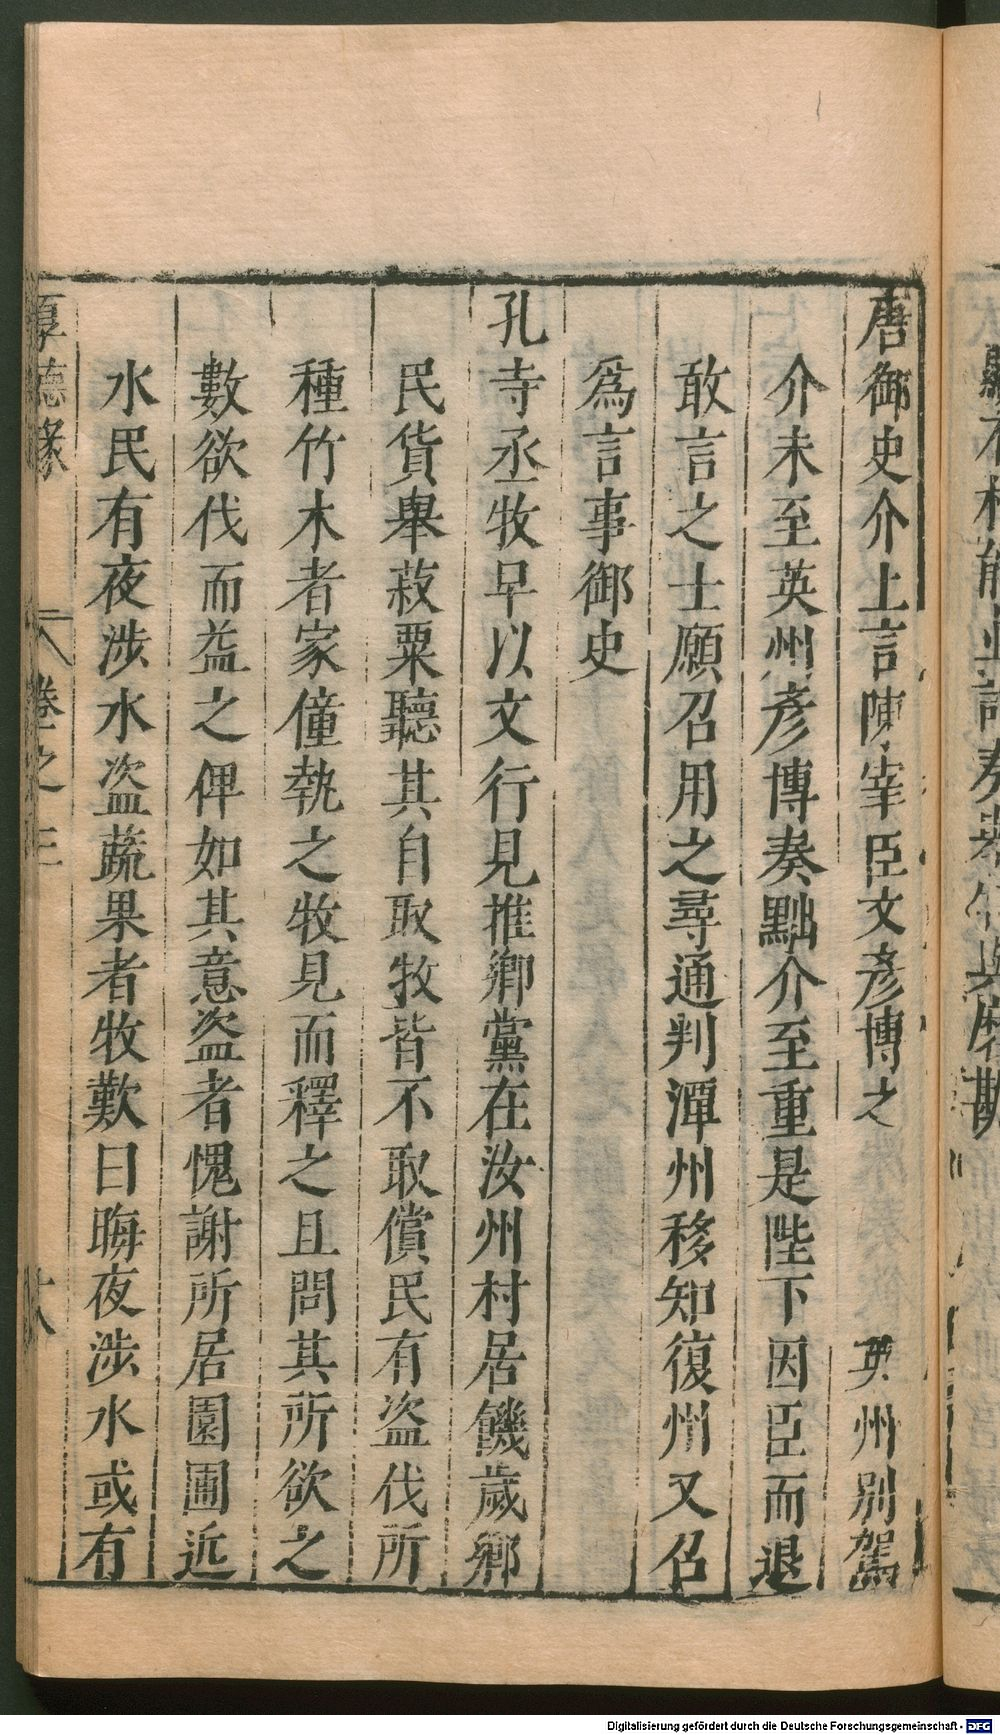 唐御史介上言陳宰臣文彥博之 英州別駕
介未至英州彥博奏黜介至重是陛下因臣而退
敢言之士願召用之尋通判潭州移知復州又召
爲言事御史
孔寺丞牧早以文行見推鄉黨在汝州村居饑歲鄉
民貨舉菽粟聽其自取牧皆不取償民有盜伐所
種竹木者家僮執之牧見而釋之且問其所欲之
數欲伐而益之俾如其意盜者愧謝所居園圃近
水民有夜涉水盜蔬果者牧歎曰晦夜涉水或有
厚德錄 卷之三
Digitalisierung gefördert durch die Deutsche Forschungsgemeinschaft - DFG